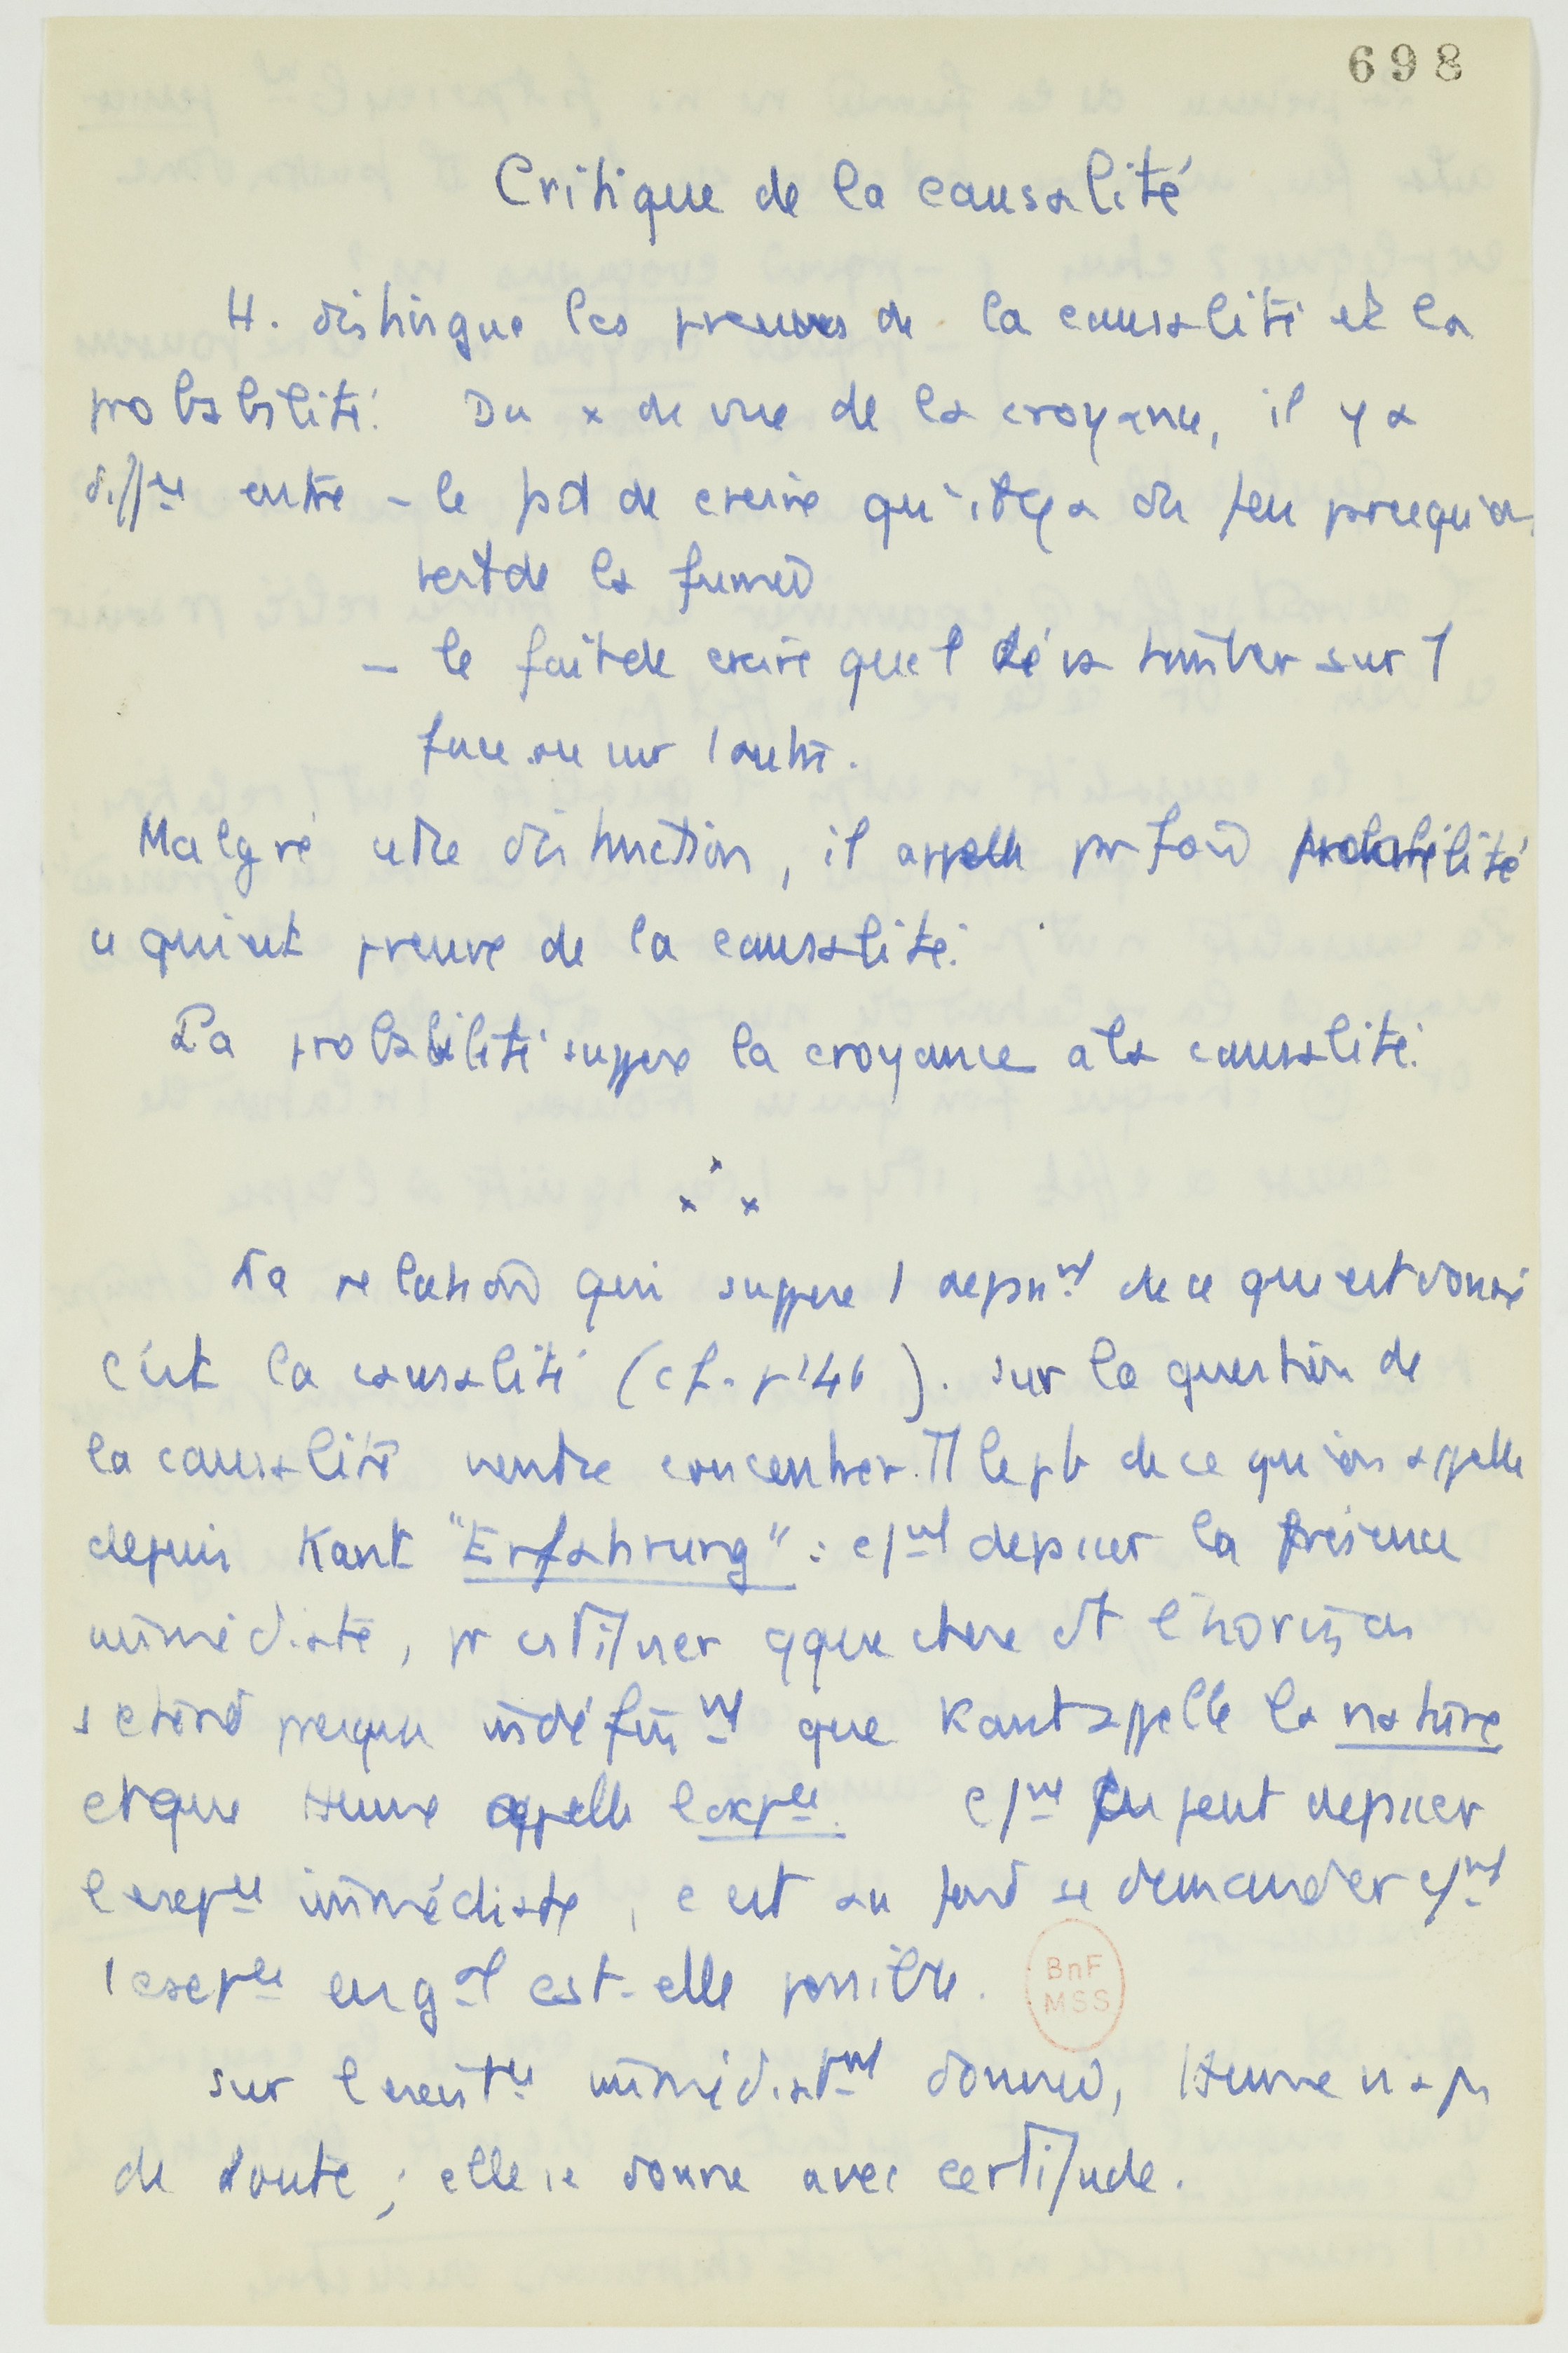 698
Critique de la causalité
H. distingue les preuves de la causalité et la
probabilité. Du x de vue de la croyance, il y a
diffce entre – le fait de croire qu'il y a du feu parce qu'on
sent de la fumée
– le fait de croire que 1 dé va tomber sur 1
face ou sur l'autre.
Malgré cette distinction, il appelle parfois probabilité
ce qui est preuve de la causalité.
La probabilité suppose la croyance à la causalité.
x x x
La relation qui suppose 1 depst de ce qui est donné
c'est la causalité (cf. p 146). Sur la question de
la causalité se concentrer le pb de ce qu'on appelle
depuis Kant "Erfahrung" : cmt dépasser la présence
immédiate, pr cstituer qque chose dt l'horizon
s'étend presque indéfinimt que Kant appelle la nature
et que Hume appelle l'expce. cmt on peut dépasser
l'expce immédiate, c'est au fond se demander cmt
l'expce en gal est-elle possible.
BnF
MSS
Sur l'existce immédiatmt donnée, Hume n'a ps
de doute ; elle se donne avec certitude.